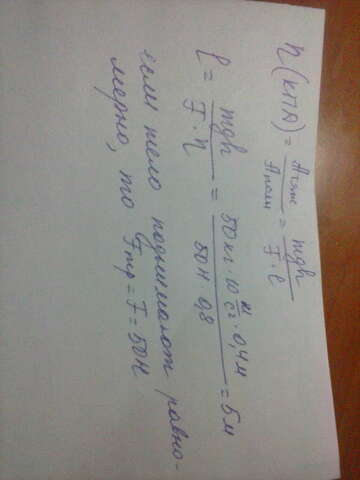 η(КПД) = Aтяж / Aполн = mgh / F · l
l = mgh / F · η = 50кг · 10 м/с² · 0,4м / 50Н · 0,8 = 5м
если тело поднимают равно-
мерно, то Fтр = F = 50Н